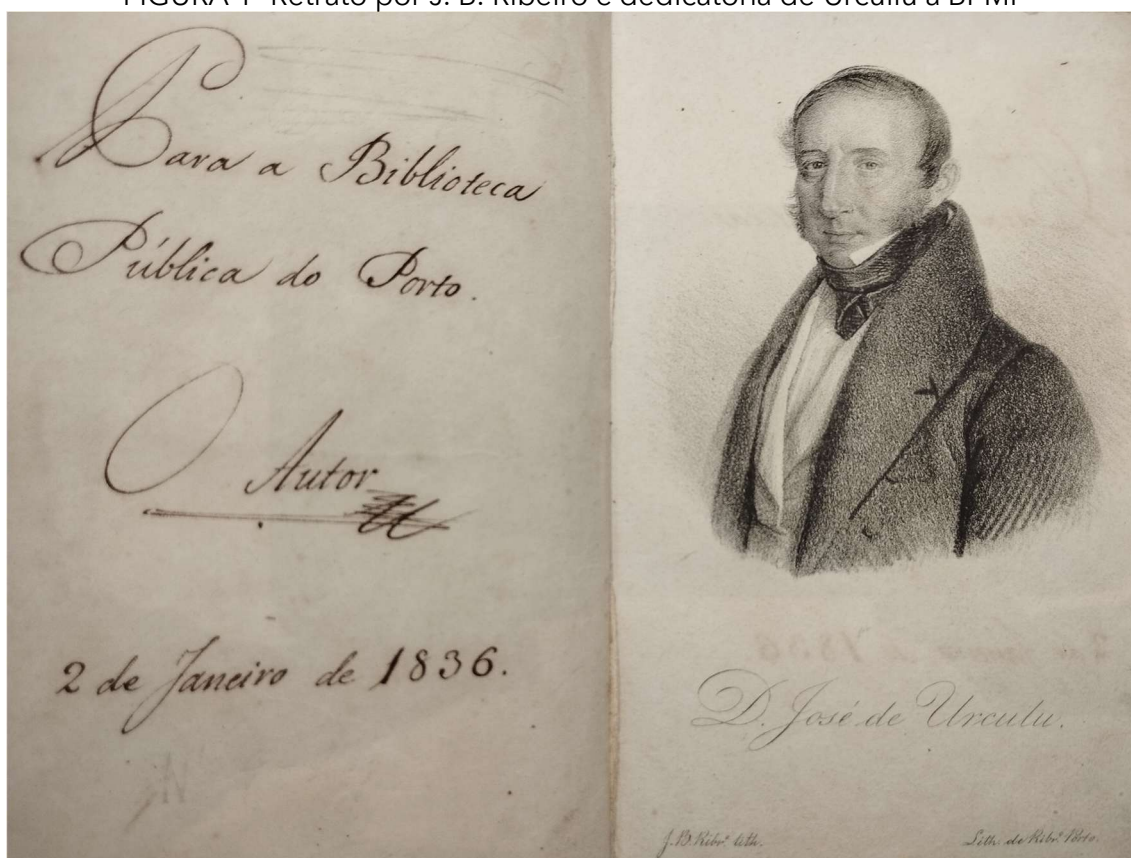 FIGURA 1 Retrato por J. B. Ribeiro e dedicatória de Urcullu à BPMP
Para a Biblioteca
Pública do Porto.
O Autor
2 de Janeiro de 1836.
D. José de Urculu.
J.B. Ribr.º lith.
Lith. de Ribr.º Porto.